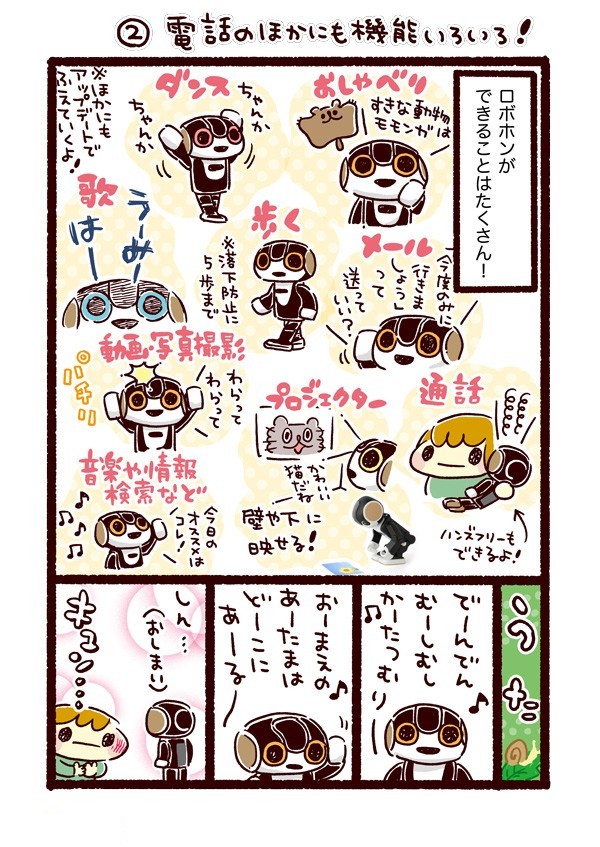 ② 電話のほかにも機能いろいろ!
ロボホンが
できることはたくさん!
おしゃべり
すきな動物は
モモンガ
ダンス
ちゃんか
ちゃんか
※ほかにも
アップデートで
ふえていくよ!
メール
「今度のみに
行きま
しょう」
って
送って
いい?
歩く
※落下防止に
5歩まで
歌
うーみー
はー
通話
ハンズフリーも
できるよ!
プロジェクター
かわいい
猫だね
壁や下に
映せる!
動画・写真撮影
わらって
わらって
パチリ
音楽や情報
検索など
今日の
オススメは
コレ!
うた
でーんでん
むーしむし
かーたつむり
おーまえの
あーたまは
どーこに
あーる
しん…
(おしまい)
キュン…